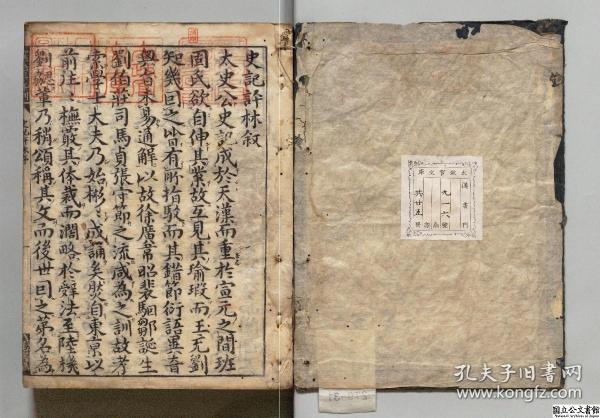 史記評林叙
太史公史記成於天漢而重於宣元之間班
固氏欲自伸其業故互見其瑜瑕而王充劉
知幾因之皆有所指駮而其錯節衍語異音
奧旨未易通解以故徐廣韋昭裴駰鄒誕生
劉伯莊司馬貞張守節之流咸為之訓故考
索學士大夫乃始彬彬成誦矣然自東京以
前注撫蔽其体裁而濶略於舜法至陸機
劉勰輩乃稍頌稱其文而後世因之第名為
太政官文庫
漢書門
九一六
號
共廿五
孔夫子旧书网
kongfz.com
国立公文書館
National Archives of Japan